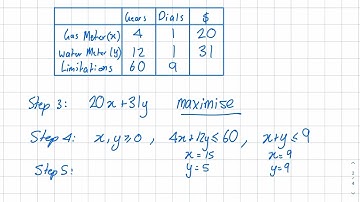 Gears Dials $
Gas Meter (x) 4 1 20
Water Meter (y) 12 1 31
Limitations 60 9
Step 3: 20x + 31y maximise
Step 4: x, y ≥ 0, 4x + 12y ≤ 60, x + y ≤ 9
x = 15 x = 9
y = 5 y = 9
Step 5: